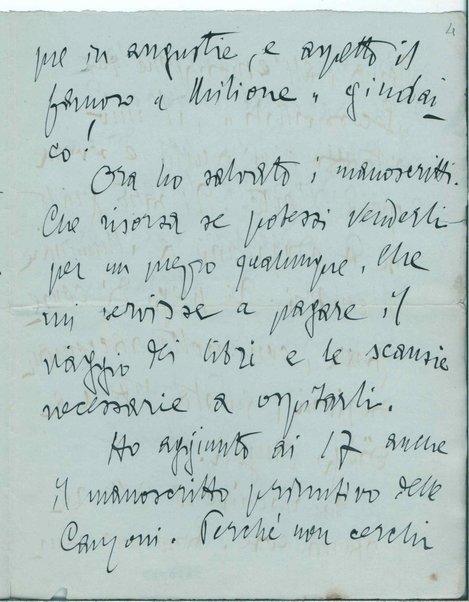 4
pre in angustie, e aspetto il
famoso « Milione » giudai_
co!
Ora ho salvato i manoscritti.
Che risorsa se potessi venderli
per un prezzo qualunque, che
mi servisse a pagare il
viaggio dei libri e le scansie
necessarie a ospitarli.
Ho aggiunto ai 17 anche
il manoscritto primitivo delle
Canzoni. Perché non cerchi